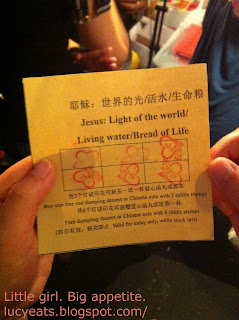 耶穌：世界的光/活水/生命粮
Jesus: Light of the world/
Living water/Bread of Life
凭3个打磋印花可获买一送一杯爱心汤丸或凉茶
Buy one free one dumpling dessert or Chinese cola with 3 riddle stamps
凭6个打磋印花可获赠爱心汤丸或凉茶一杯
Free dumpling dessert or Chinese cola with 6 riddle stamps
(即日有效，换完即止 Valid for today only, while stock last)
Little girl. Big appetite.
lucyeats.blogspot.com/